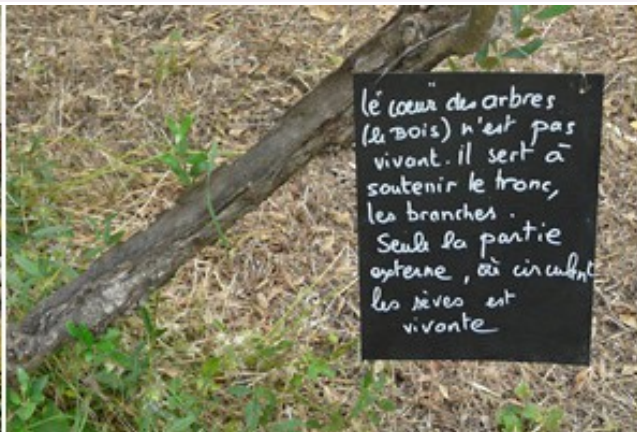 le cœur des arbres
(le BOIS) n'est pas
vivant. il sert à
soutenir le tronc,
les branches.
Seule la partie
externe, où circulent
les sèves est
vivante